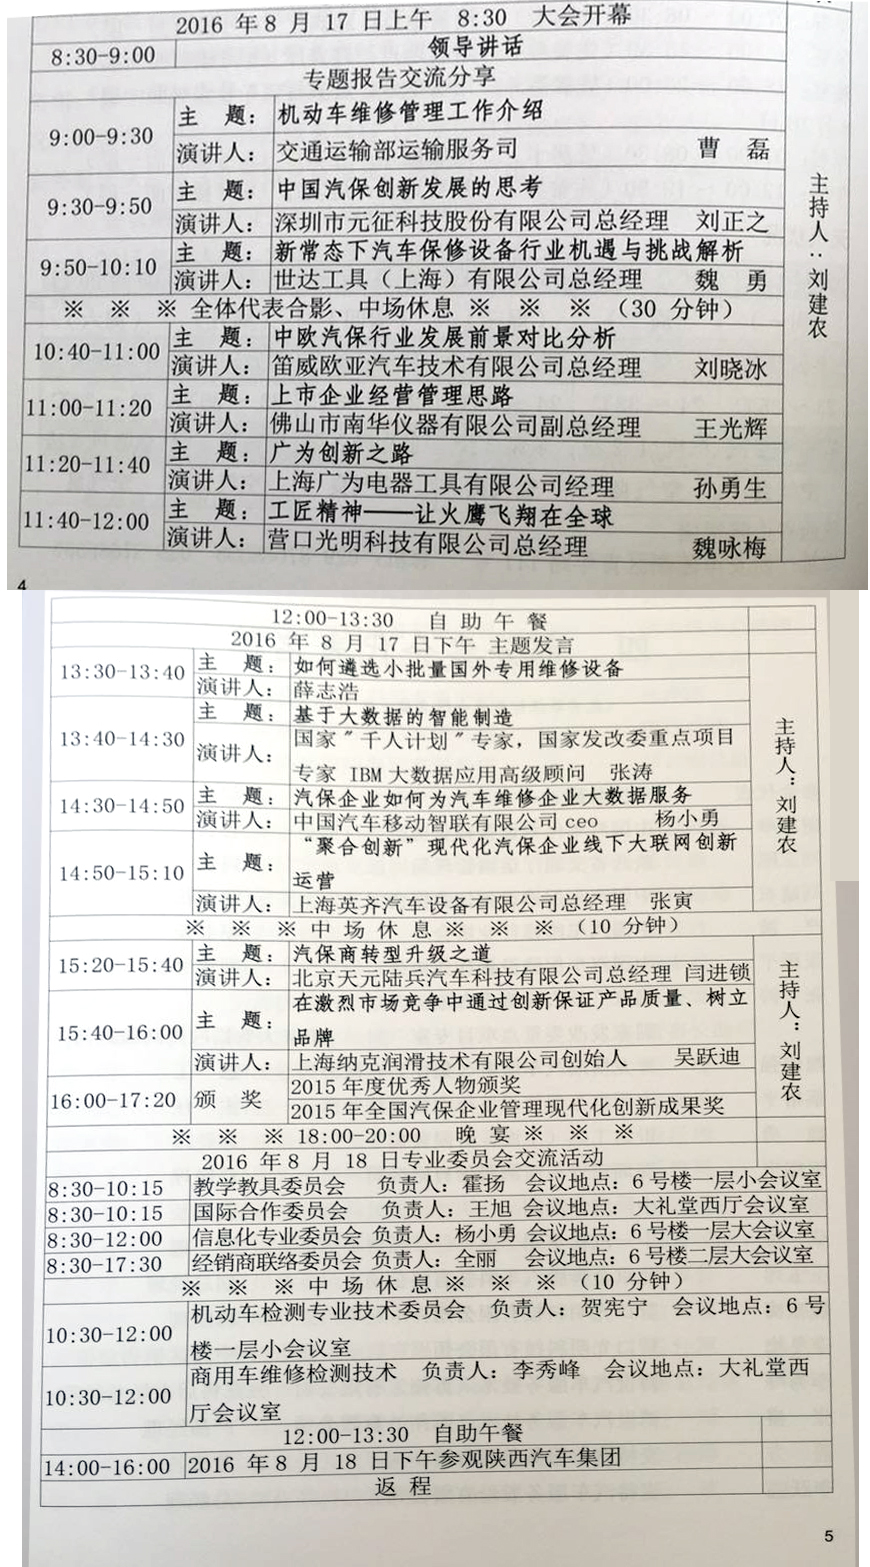 2016 年 8 月 17 日上午 8:30 大会开幕
8:30-9:00 领导讲话
专题报告交流分享
9:00-9:30 主 题: 机动车维修管理工作介绍
演讲人: 交通运输部运输服务司 曹 磊
9:30-9:50 主 题: 中国汽保创新发展的思考
演讲人: 深圳市元征科技股份有限公司总经理 刘正之
9:50-10:10 主 题: 新常态下汽车保修设备行业机遇与挑战解析
演讲人: 世达工具（上海）有限公司总经理 魏 勇
※ ※ ※ 全体代表合影、中场休息 ※ ※ ※ （30 分钟）
10:40-11:00 主 题: 中欧汽保行业发展前景对比分析
演讲人: 笛威欧亚汽车技术有限公司总经理 刘晓冰
11:00-11:20 主 题: 上市企业经营管理思路
演讲人: 佛山市南华仪器有限公司副总经理 王光辉
11:20-11:40 主 题: 广为创新之路
演讲人: 上海广为电器工具有限公司经理 孙勇生
11:40-12:00 主 题: 工匠精神——让火鹰飞翔在全球
演讲人: 营口光明科技有限公司总经理 魏咏梅
主持人: 刘建农
4
12:00-13:30 自 助 午 餐
2016 年 8 月 17 日下午 主题发言
13:30-13:40 主 题: 如何遴选小批量国外专用维修设备
演讲人: 薛志浩
13:40-14:30 主 题: 基于大数据的智能制造
演讲人: 国家"千人计划"专家，国家发改委重点项目
专家 IBM 大数据应用高级顾问 张涛
14:30-14:50 主 题: 汽保企业如何为汽车维修企业大数据服务
演讲人: 中国汽车移动智联有限公司 ceo 杨小勇
14:50-15:10 主 题: “聚合创新”现代化汽保企业线下大联网创新
运营
演讲人: 上海英齐汽车设备有限公司总经理 张寅
主持人: 刘建农
※ ※ ※ 中 场 休 息 ※ ※ ※ （10 分钟）
15:20-15:40 主 题: 汽保商转型升级之道
演讲人: 北京天元陆兵汽车科技有限公司总经理 闫进锁
15:40-16:00 主 题: 在激烈市场竞争中通过创新保证产品质量、树立
品牌
演讲人: 上海纳克润滑技术有限公司创始人 吴跃迪
16:00-17:20 颁 奖 2015 年度优秀人物颁奖
2015 年全国汽保企业管理现代化创新成果奖
主持人: 刘建农
※ ※ ※ 18:00-20:00 晚 宴 ※ ※ ※
2016 年 8 月 18 日专业委员会交流活动
8:30-10:15 教学教具委员会 负责人: 霍扬 会议地点: 6 号楼一层小会议室
8:30-10:15 国际合作委员会 负责人: 王旭 会议地点: 大礼堂西厅会议室
8:30-12:00 信息化专业委员会 负责人: 杨小勇 会议地点: 6 号楼一层大会议室
8:30-17:30 经销商联络委员会 负责人: 全丽 会议地点: 6 号楼二层大会议室
※ ※ ※ 中 场 休 息 ※ ※ ※ （10 分钟）
10:30-12:00 机动车检测专业技术委员会 负责人: 贺宪宁 会议地点: 6 号
楼一层小会议室
10:30-12:00 商用车维修检测技术 负责人: 李秀峰 会议地点: 大礼堂西
厅会议室
12:00-13:30 自助午餐
14:00-16:00 2016 年 8 月 18 日下午参观陕西汽车集团
返 程
5